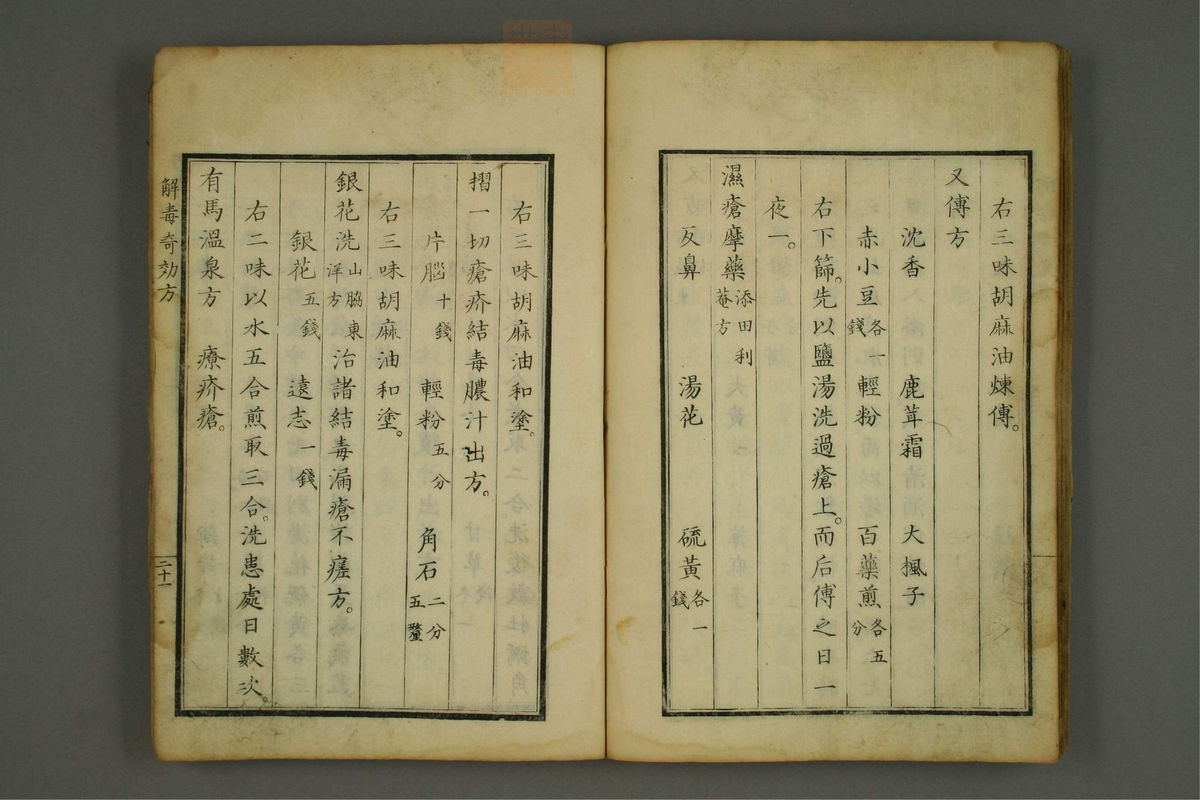 右三味胡麻油煉傅。
又傅方
沈香　鹿茸霜　大楓子
赤小豆各一錢　輕粉　百藥煎各五分
右下篩。先以鹽湯洗過瘡上。而后傅之日一
夜一。
濕瘡摩藥添田利菴方
反鼻　湯花　硫黃各一錢
右三味胡麻油和塗。
摺一切瘡疥結毒膿汁出方。
片腦十錢　輕粉五分　角石二分五釐
右三味胡麻油和塗。
銀花洗山脇東洋方治諸結毒漏瘡不瘥方。
銀花五錢　遠志一錢
右二味以水五合煎取三合。洗患處日數次。
有馬溫泉方　療疥瘡。
解毒奇効方
二十一